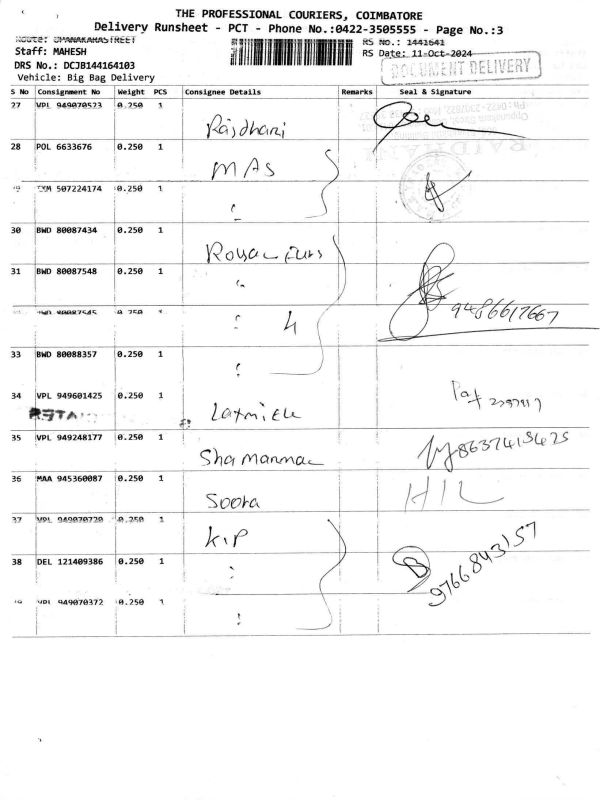 THE PROFESSIONAL COURIERS, COIMBATORE
Delivery Runsheet - PCT - Phone No.:0422-3505555 - Page No.:3
Route: OPANAKARASTREET RS No.: 1441641
Staff: MAHESH RS Date: 11-Oct-2024
DRS No.: DCJB144164103 DOCUMENT DELIVERY
Vehicle: Big Bag Delivery
S No Consignment No Weight PCS Consignee Details Remarks Seal & Signature
27 VPL 949070523 0.250 1 Rajdhani
28 POL 6633676 0.250 1 MAS
507224174 0.250 1 "
30 BWD 80087434 0.250 1 Royal Furs
31 BWD 80087548 0.250 1 "
" 4 9486617667
33 BWD 80088357 0.250 1 "
34 VPL 949601425 0.250 1
35 VPL 949248177 0.250 1 8637419425
36 MAA 945360087 0.250 1 Soora
37 VPL 949070720 0.250 1 KIP
38 DEL 121409386 0.250 1 " 9766843157
VPL 949070372 0.250 1 "